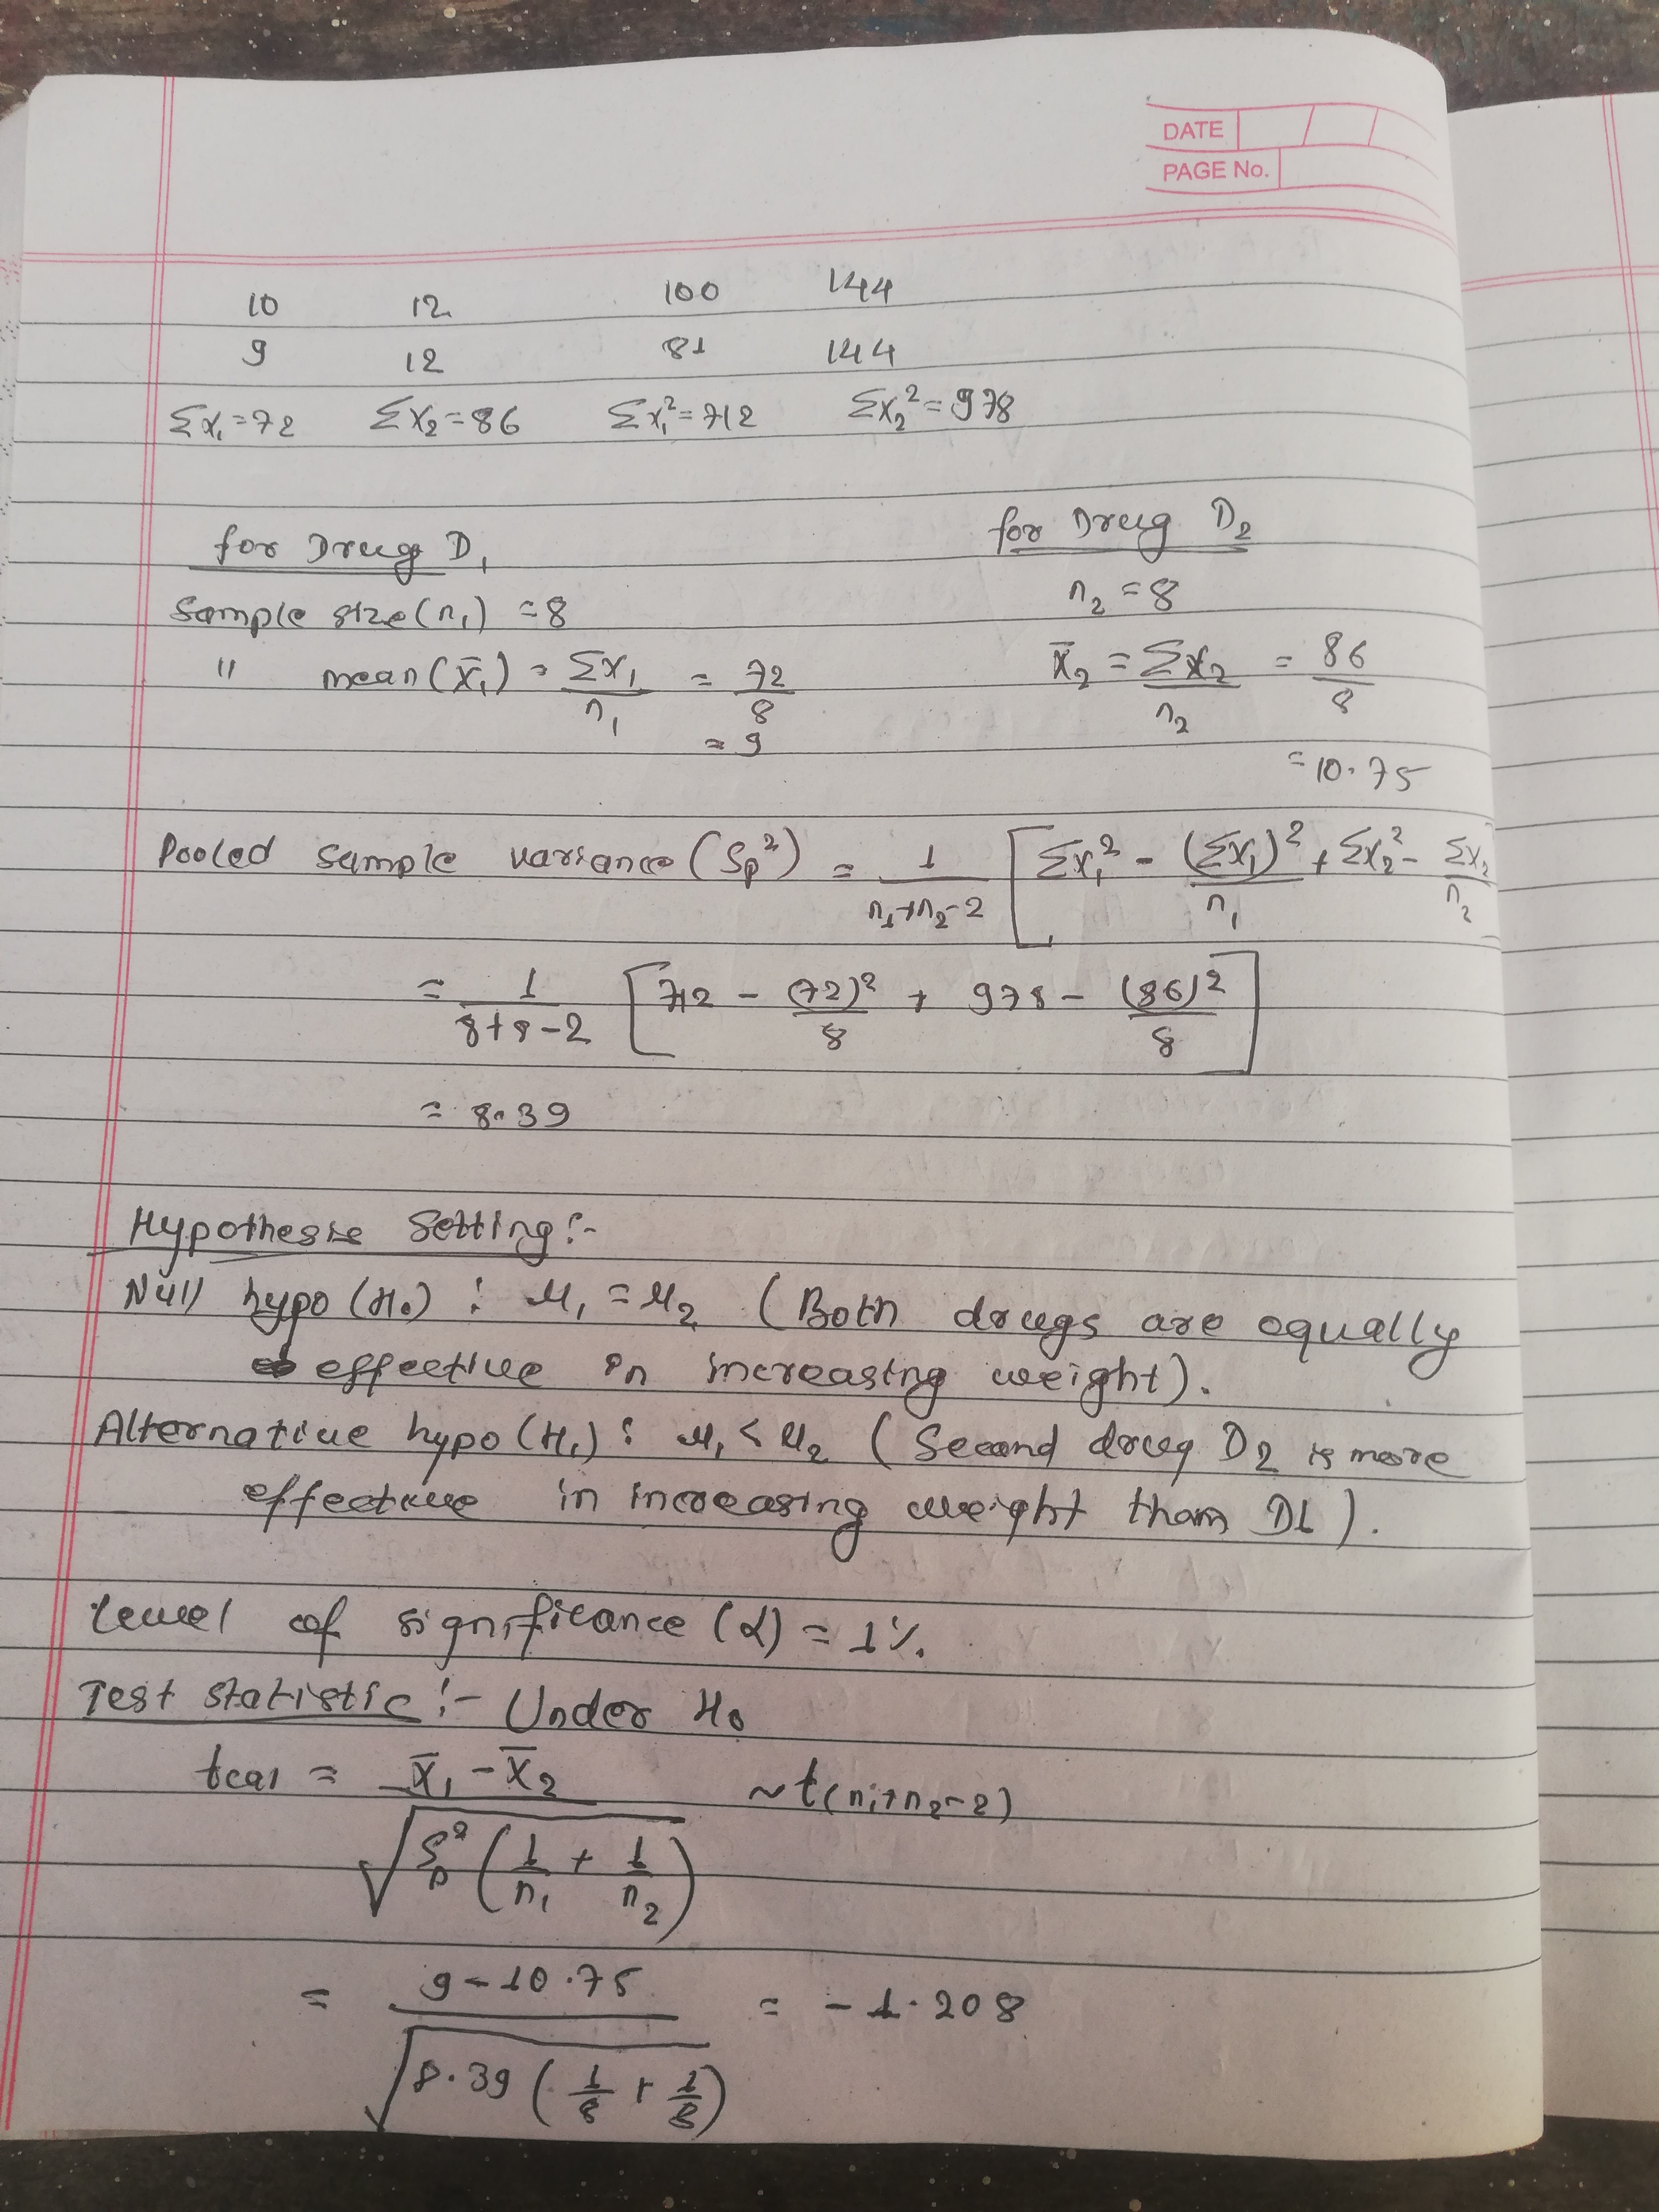 DATE
PAGE No.
10 12 100 144
9 12 81 144
Σx₁=72 Σx₂=86 Σx₁²=712 Σx₂²=978
for Drug D₁ for Drug D₂
Sample size(n₁) =8 n₂ =8
" mean(x̄₁) = Σx₁/n₁ = 72/8 x̄₂ = Σx₂/n₂ = 86/8
= 9
= 10.75
Pooled sample variance(Sp²) = 1/(n₁+n₂-2) [Σx₁² - (Σx₁)²/n₁ + Σx₂² - Σx₂/n₂
= 1/(8+8-2) [712 - (72)²/8 + 978 - (86)²/8]
= 8.39
Hypothesis Setting:-
Null hypo(H₀) : μ₁ = μ₂ (Both drugs are equally
effective in increasing weight).
Alternative hypo(H₁) : μ₁ < μ₂ (Second drug D₂ is more
effective in increasing weight than D1).
Level of significance (α) = 1%.
Test statistic:- Under H₀
tcal = (x̄₁ - x̄₂)/√(Sp² (1/n₁ + 1/n₂)) ~t(n₁+n₂-2)
= (9-10.75)/√(8.39 (1/8 + 1/8)) = -1.208